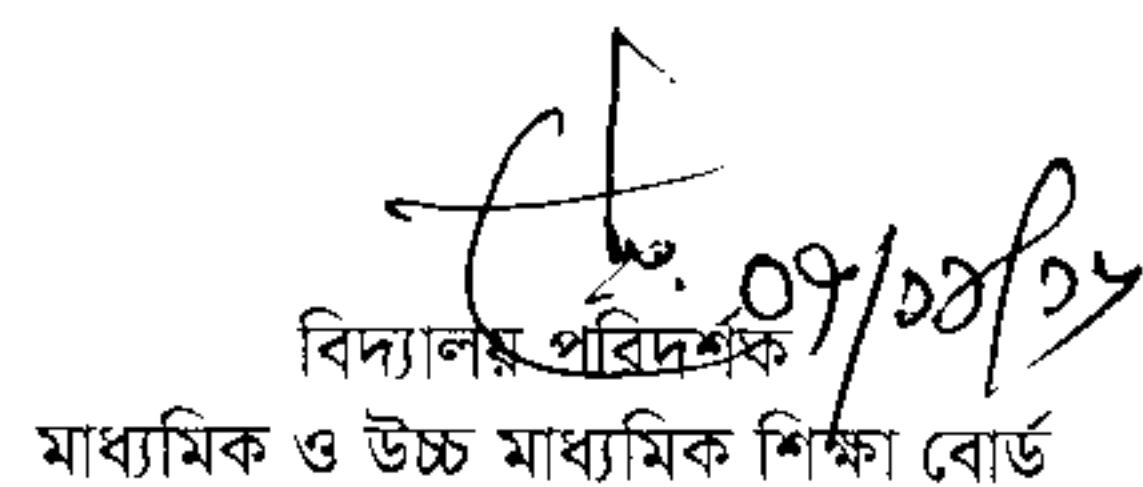 ০৭/১২/১৮
বিদ্যালয় পরিদর্শক
মাধ্যমিক ও উচ্চ মাধ্যমিক শিক্ষা বোর্ড